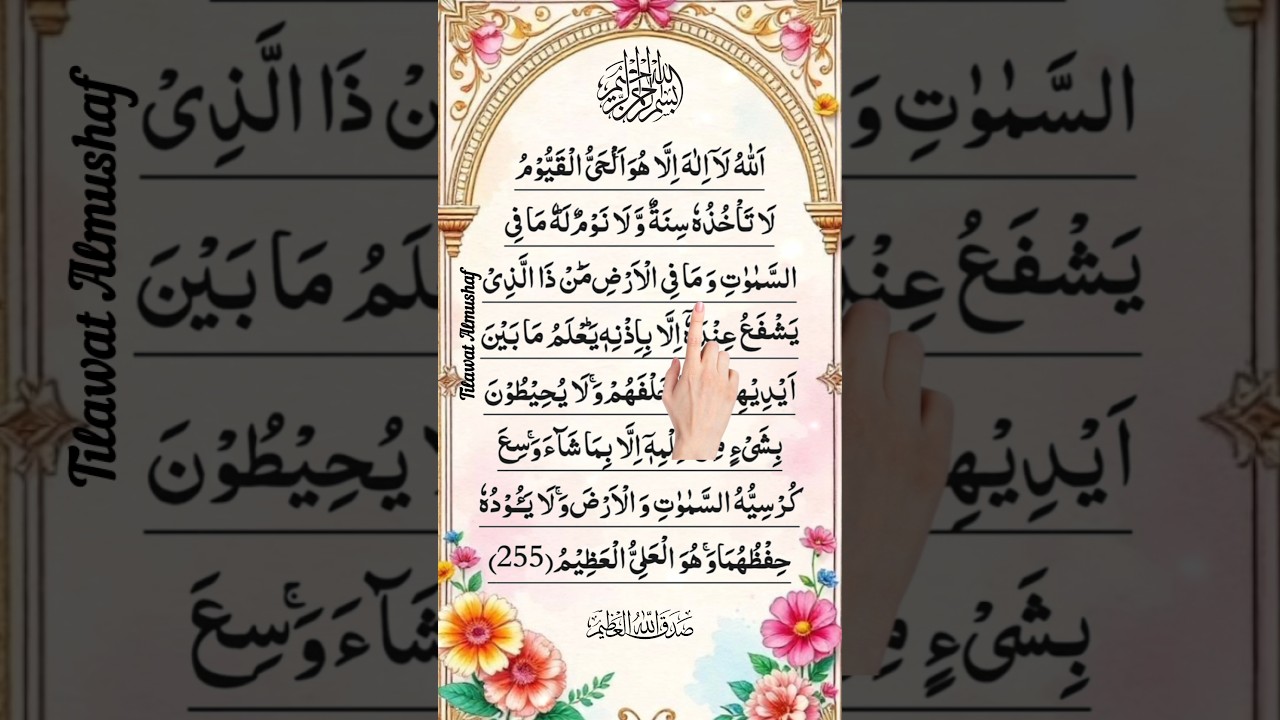 بسم الله الرحمن الرحيم
اَللّٰهُ لَآ اِلٰهَ اِلَّا هُوَ اَلْحَیُّ الْقَیُّوْمُ
لَا تَاْخُذُهٗ سِنَةٌ وَّ لَا نَوْمٌ لَهٗ مَا فِی
السَّمٰوٰتِ وَ مَا فِی الْاَرْضِ مَنْ ذَا الَّذِیْ
یَشْفَعُ عِنْدَهٗۤ اِلَّا بِاِذْنِهٖ یَعْلَمُ مَا بَیْنَ
اَیْدِیْهِ خَلْفَهُمْ وَ لَا یُحِیْطُوْنَ
بِشَیْءٍ اِلَّا بِمَا شَآءَ وَسِعَ
كُرْسِیُّهُ السَّمٰوٰتِ وَ الْاَرْضَ وَ لَا یَـُٔوْدُهٗ
حِفْظُهُمَا وَ هُوَ الْعَلِیُّ الْعَظِیْمُ (255)
صدق الله العظيم
Tilawat Almushaf
Tilawat Almushaf
السَّمٰوٰتِ وَ
ذَا الَّذِیْ
یَشْفَعُ
مَا بَیْنَ
اَیْدِیْهِ
یُحِیْطُوْنَ
بِشَیْءٍ
وَسِعَ